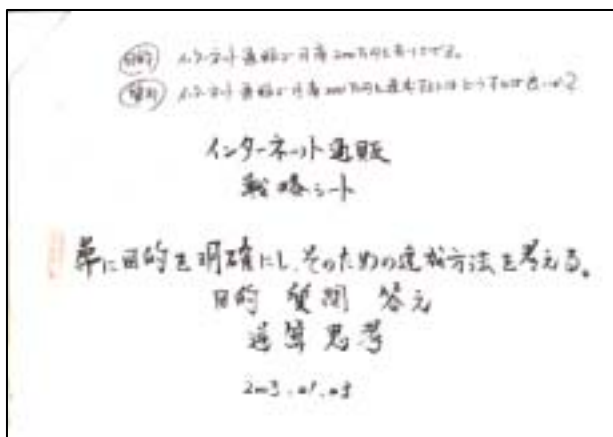 目的 インターネット通販で月商200万円を売り上げる。
質問 インターネット通販で月商200万円を達成するにはどうすれば良いか?
インターネット通販
戦略シート
常に目的を明確にし、そのための達成方法を考える。
目的 質問 答え
逆算思考
2003.01.08